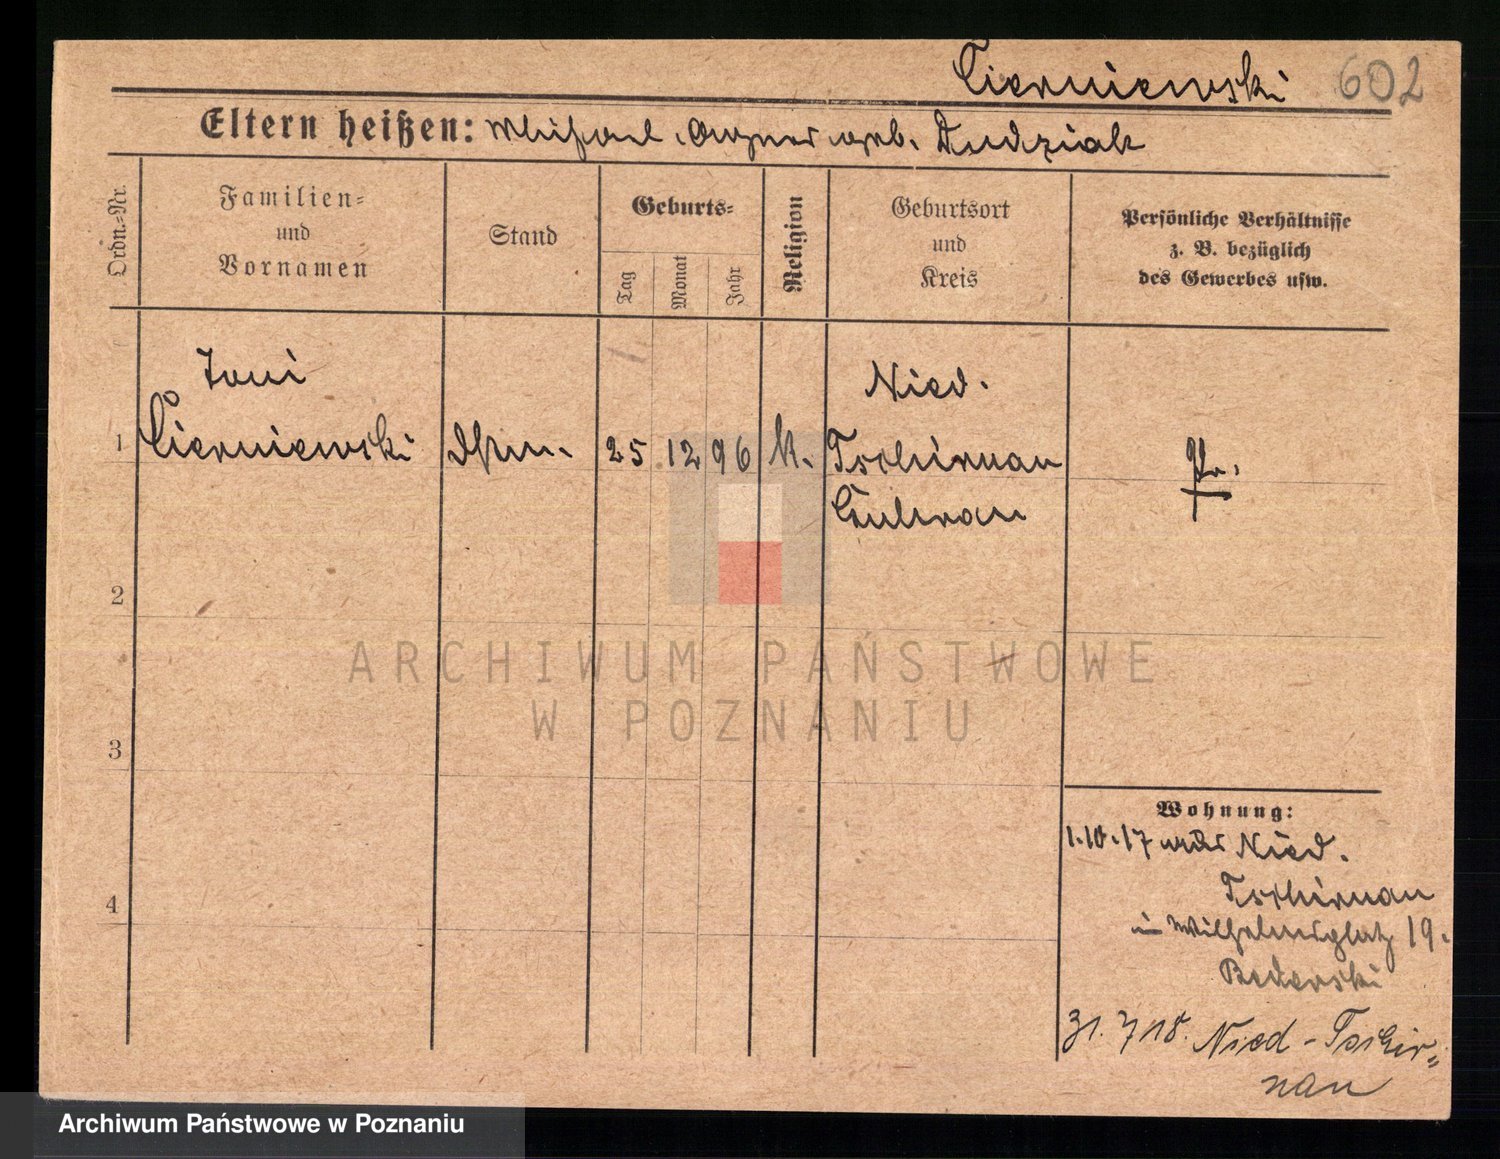 Cierniewski 602
Eltern heißen: Michael, Agnes geb. Dudziak
Ordn.-Nr.
Familien-
und
Vornamen
Stand
Geburts-
Tag
Monat
Jahr
Religion
Geburtsort
und
Kreis
Persönliche Verhältnisse
z. B. bezüglich
des Gewerbes usw.
Nied.
1 Cierniewski 25 12 96 k. Tschirnau Pr.
Guhrau
2
3
4
Wohnung:
1.10.17 aus Nied.
Tschirnau
in Wilhelmsplatz 19.
Bederski
31.7 18. Nied-Tschir-
nau
ARCHIWUM PAŃSTWOWE
W POZNANIU
Archiwum Państwowe w Poznaniu